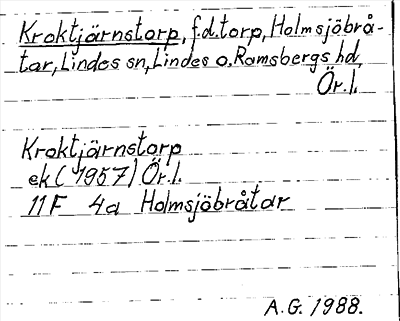 Kroktjärnstorp, f.d.torp, Holmsjöbrå-
tar, Lindes sn, Lindes o. Ramsbergs hd,
Ör.l.
Kroktjärnstorp
ek (1957) Ör.l.
11F 4a Holmsjöbråtar
A.G. 1988.